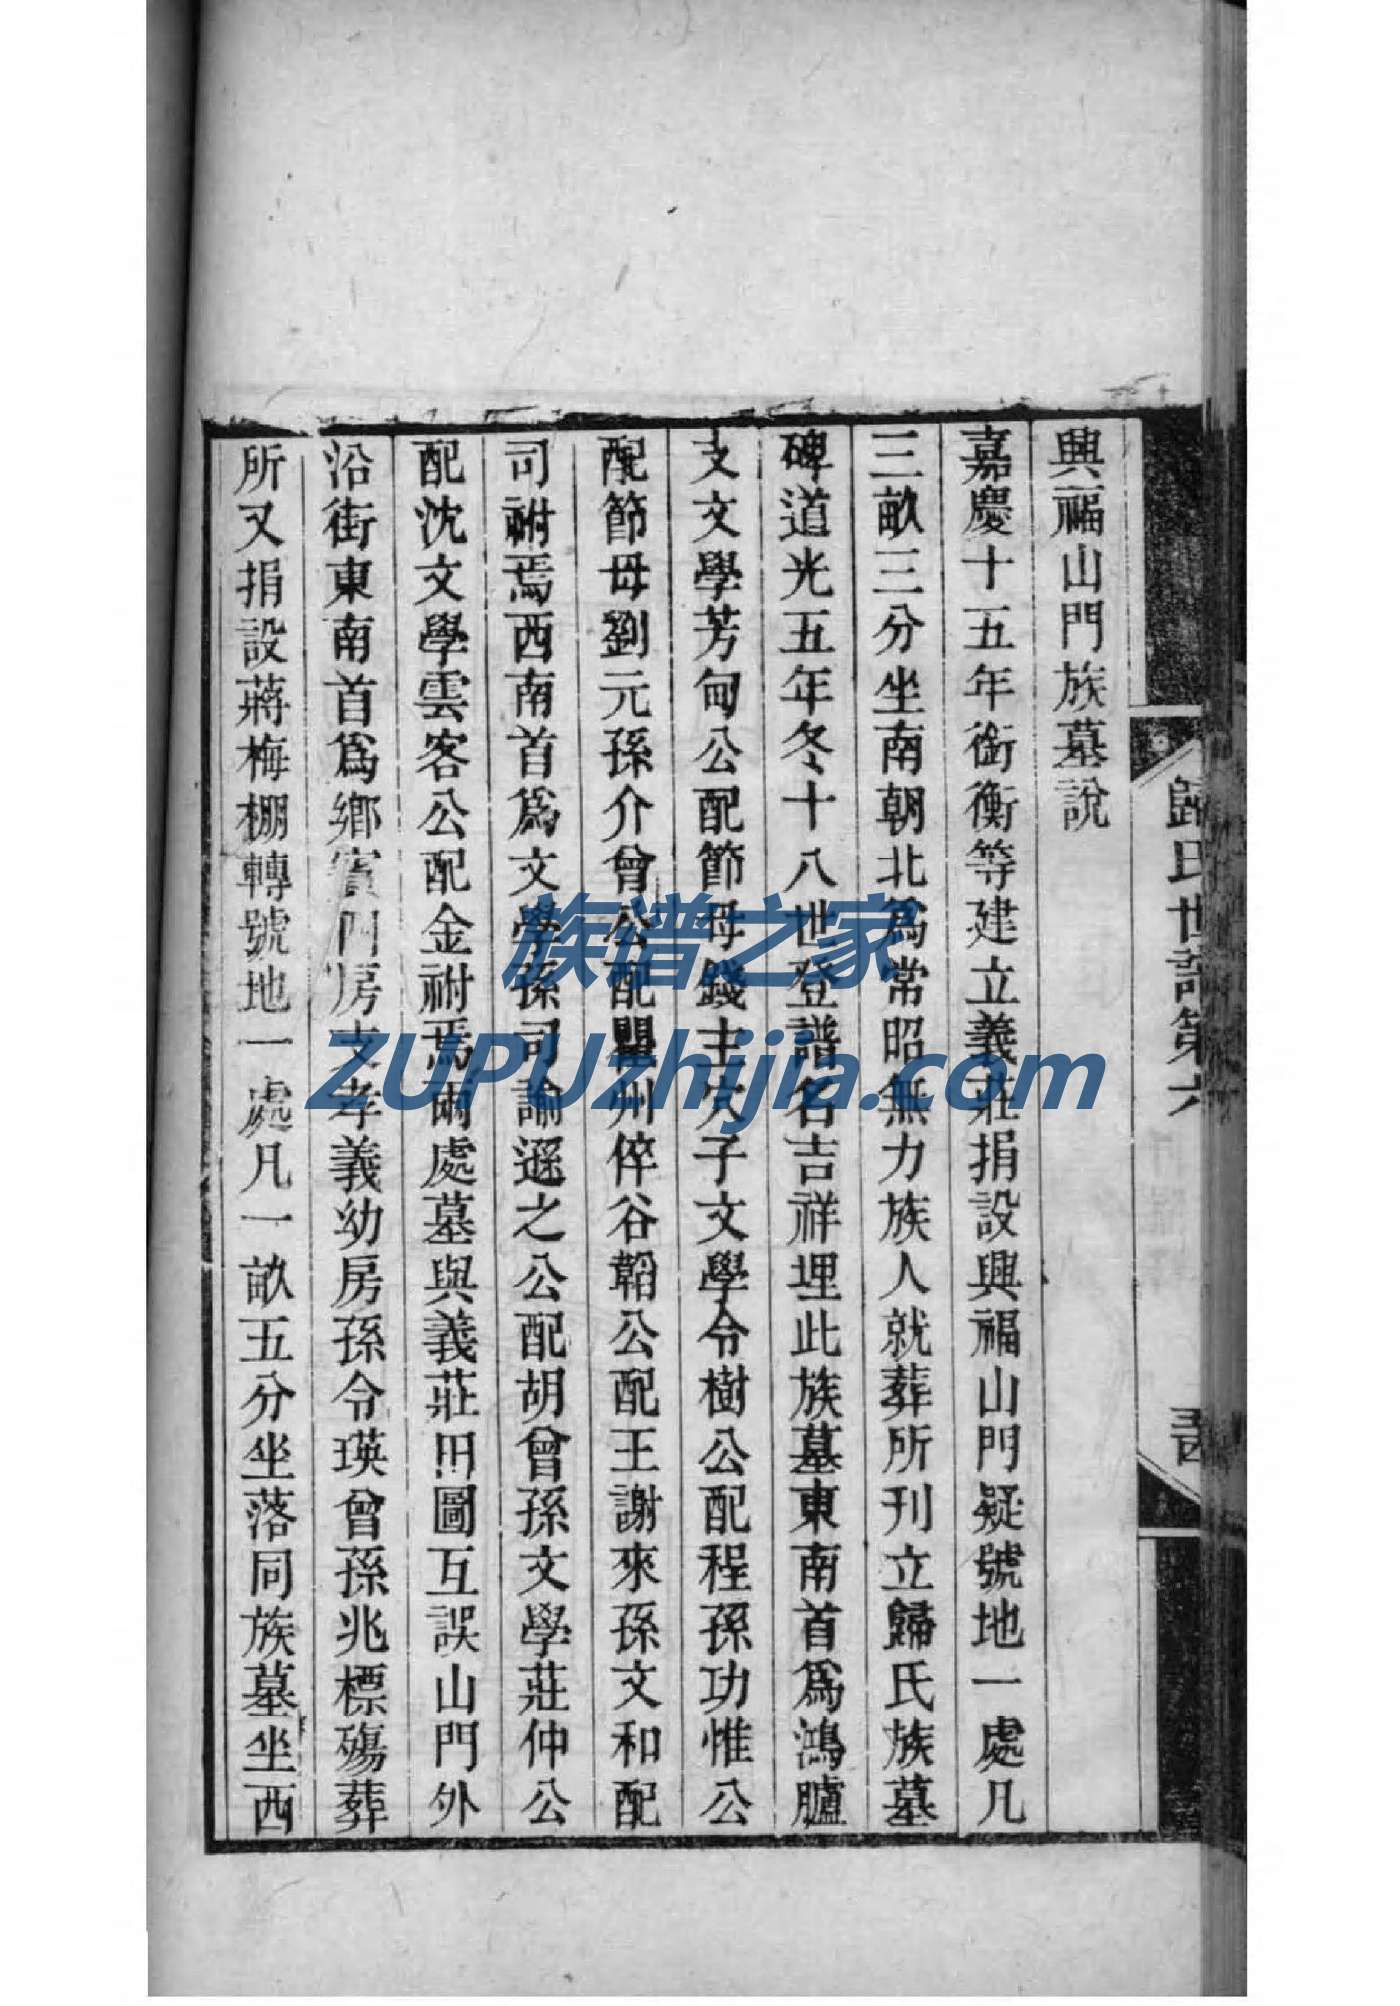 興福山門族墓說
嘉慶十五年衡衡等建立義莊捐設興福山門疑號地一處凡
三畝三分坐南朝北為常昭無力族人就葬所刊立歸氏族墓
碑道光五年冬十八世登譜名吉祥埋此族墓東南首為鴻臚
支文學芳甸公配節母錢主穴子文學令樹公配程孫功惟公
配節母劉元孫介曾公配瞿州倅谷韜公配王謝來孫文和配
司祔焉西南首為文學孫司諭遜之公配胡曾孫文學莊仲公
配沈文學雲客公配金祔焉兩處墓與義莊田圖互誤山門外
沿街東南首為鄉賓門房支孝義幼房孫令瑛曾孫兆標殤葬
所又捐設蔣梅棚轉號地一處凡一畝五分坐落同族墓坐西
歸氏世譜第六
族谱之家
ZUPUzhijia.com